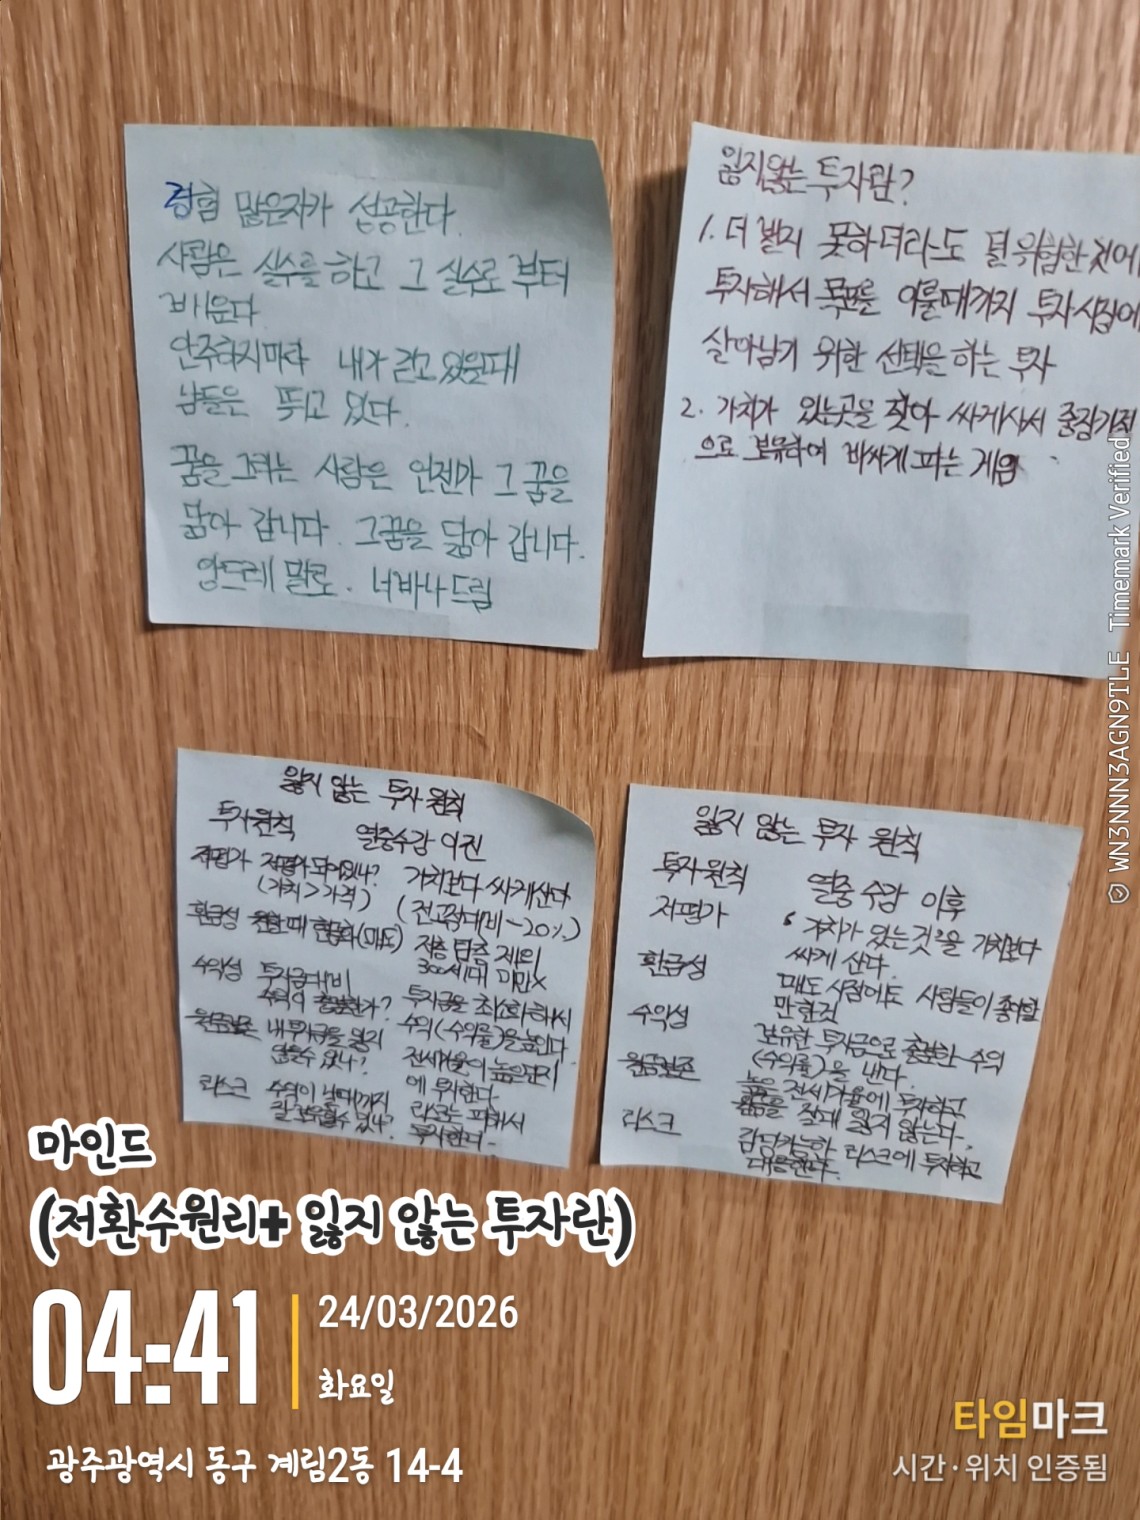 경험 많은자가 성공한다.
사람은 실수를 하고 그 실수로 부터
배운다
안주하지마라 내가 걷고 있을때
남들은 뛰고 있다.
꿈을 그리는 사람은 언젠가 그 꿈을
닮아 갑니다. 그꿈을 닮아 갑니다.
앙드레 말로. 너바나드림
잃지않는 투자란?
1. 더 벌지 못하더라도 덜 위험한것에
투자해서 목표를 이룰때까지 투자시장에
살아남기 위한 선택을 하는 투자
2. 가치가 있는곳을 찾아 싸게사서 중장기적
으로 보유하여 비싸게 파는 게임
잃지 않는 투자 원칙
투자원칙 열중수강 이전
저평가 저평가 되어있나? 가치보다 싸게산다
(가치>가격) (전고점대비-20%)
환금성 원할때 현금화(매도) 저층 탑층 제외
300세대 미만X
수익성 투자금대비 투자금을 최소화하서
수익이 충분한가? 수익(수익률)을 높인다.
원금보존 내 투자금을 잃지 전세가율이 높은단지
않을수 있나? 에 투자한다.
리스크 수익이 날때까지 리스크는 피해서
잘 보유할수 있나? 투자한다.
잃지 않는 투자 원칙
투자원칙 열중 수강 이후
저평가 '가치가 있는것'을 가치보다
싸게 산다.
환금성 매도 시점에도 사람들이 좋아할
만한것
수익성 보유한 투자금으로 충분한 수익
(수익률)을 낸다.
원금보존 높은 전세가율에 투자하고
원금을 절대 잃지 않는다.
리스크 감당가능한 리스크에 투자하고
대응한다.
WN3NNN3AGN9TLE Timemark Verified
마인드
(저환수원리+ 잃지 않는 투자란)
04:41
24/03/2026
화요일
광주광역시 동구 계림2동 14-4
타임마크
시간·위치 인증됨